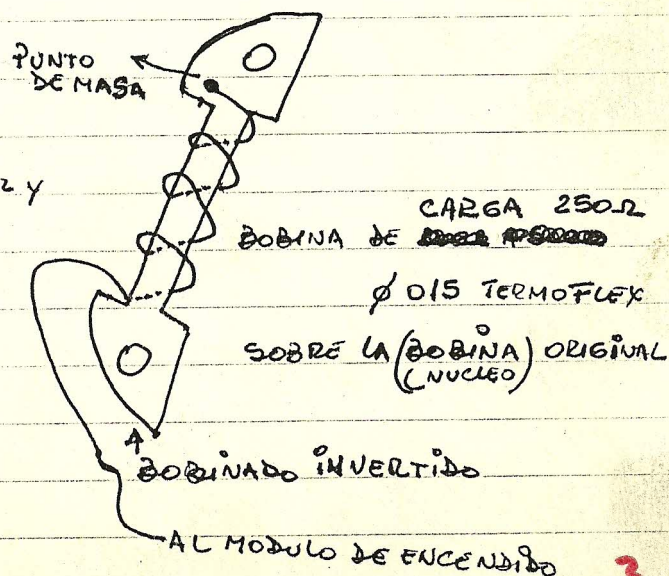 PUNTO
DE MASA
Y
CARGA 250Ω
BOBINA DE
Ø 015 TERMOFLEX
SOBRE LA (BOBINA) ORIGINAL
(NUCLEO)
BOBINADO INVERTIDO
AL MODULO DE ENCENDIDO